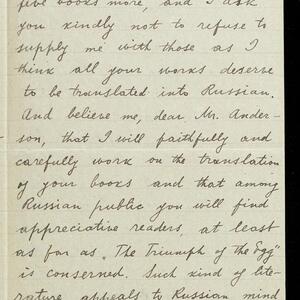 five books more, and I ask
you kindly not to refuse to
supply me with those as I
think all your works deserve
to be translated into Russian.
And believe me, dear Mr. Ander-
son, that I will faithfully and
carefully work on the translation
of your books and that among
Russian public you will find
appreciative readers, at least
as far as „The Triumph of the Egg"
is concerned. Such kind of lite-
rature appeals to Russian mind